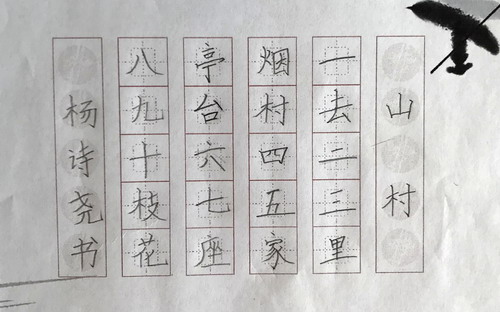 山村
一去二三里
烟村四五家
亭台六七座
八九十枝花
杨诗尧书